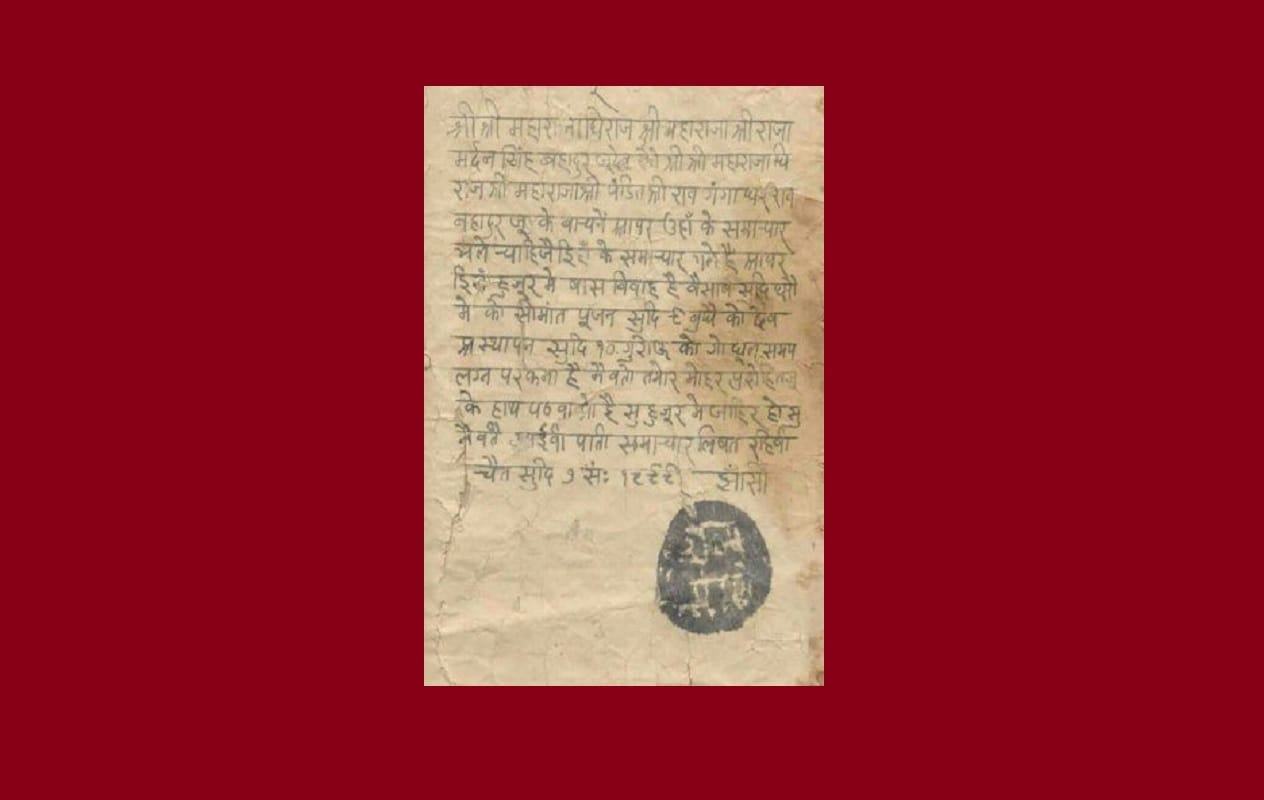 श्री श्री महाराजाधिराज श्री महाराजा श्री राजा
मर्दन सिंह बहादुर जू देव श्री श्री महाराजाधि
राज श्री महाराजा श्री पंडित श्री राव गंगाधर राव
बहादुर जू के बाचनें आपर उहाँ के समाचार
भले चाहिजै इहाँ के समाचार भले हैं आपर
इहाँ हुजूर मे षास विवाह है वैसाष सुदि
मे को सीमांत पूजन सुदि ९ बुधै को देव
अस्थापन सुदि १० गुरौऊ को गोधूल समय
लग्न है नैवतो मोहर पुरोहित जू
के हाथ पठवाओ है सु हुजूर मे जाहिर हो सु
नैवतै आईवी पाती समाचार लिषत रहिवी
चैत सुदि ७ सं: झांसी